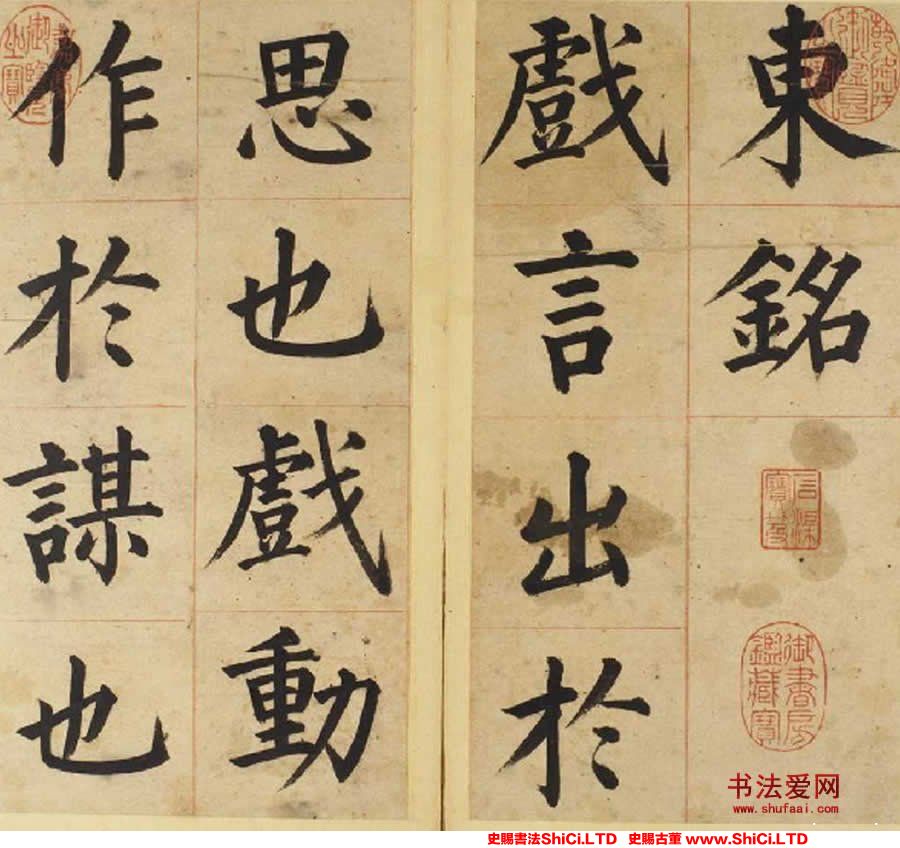 東銘
戲言出於
思也戲動
作於謀也
御書房鑑藏寶
书法爱网
www.shufaai.com
史賜書法ShiCi.LTD 史賜古董 www.ShiCi.LTD